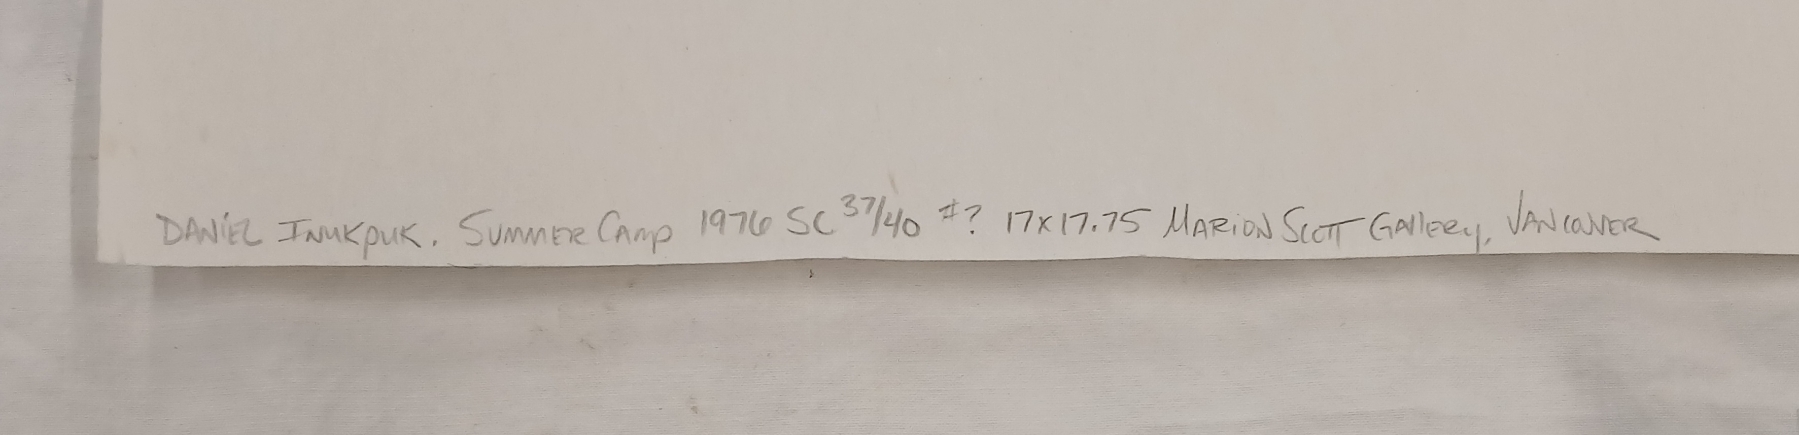 DANIEL INUKPUK. SUMMER CAMP 1976 SC 37/40 #? 17x17.75 MARION SCOTT GALLERY, VANCOUVER